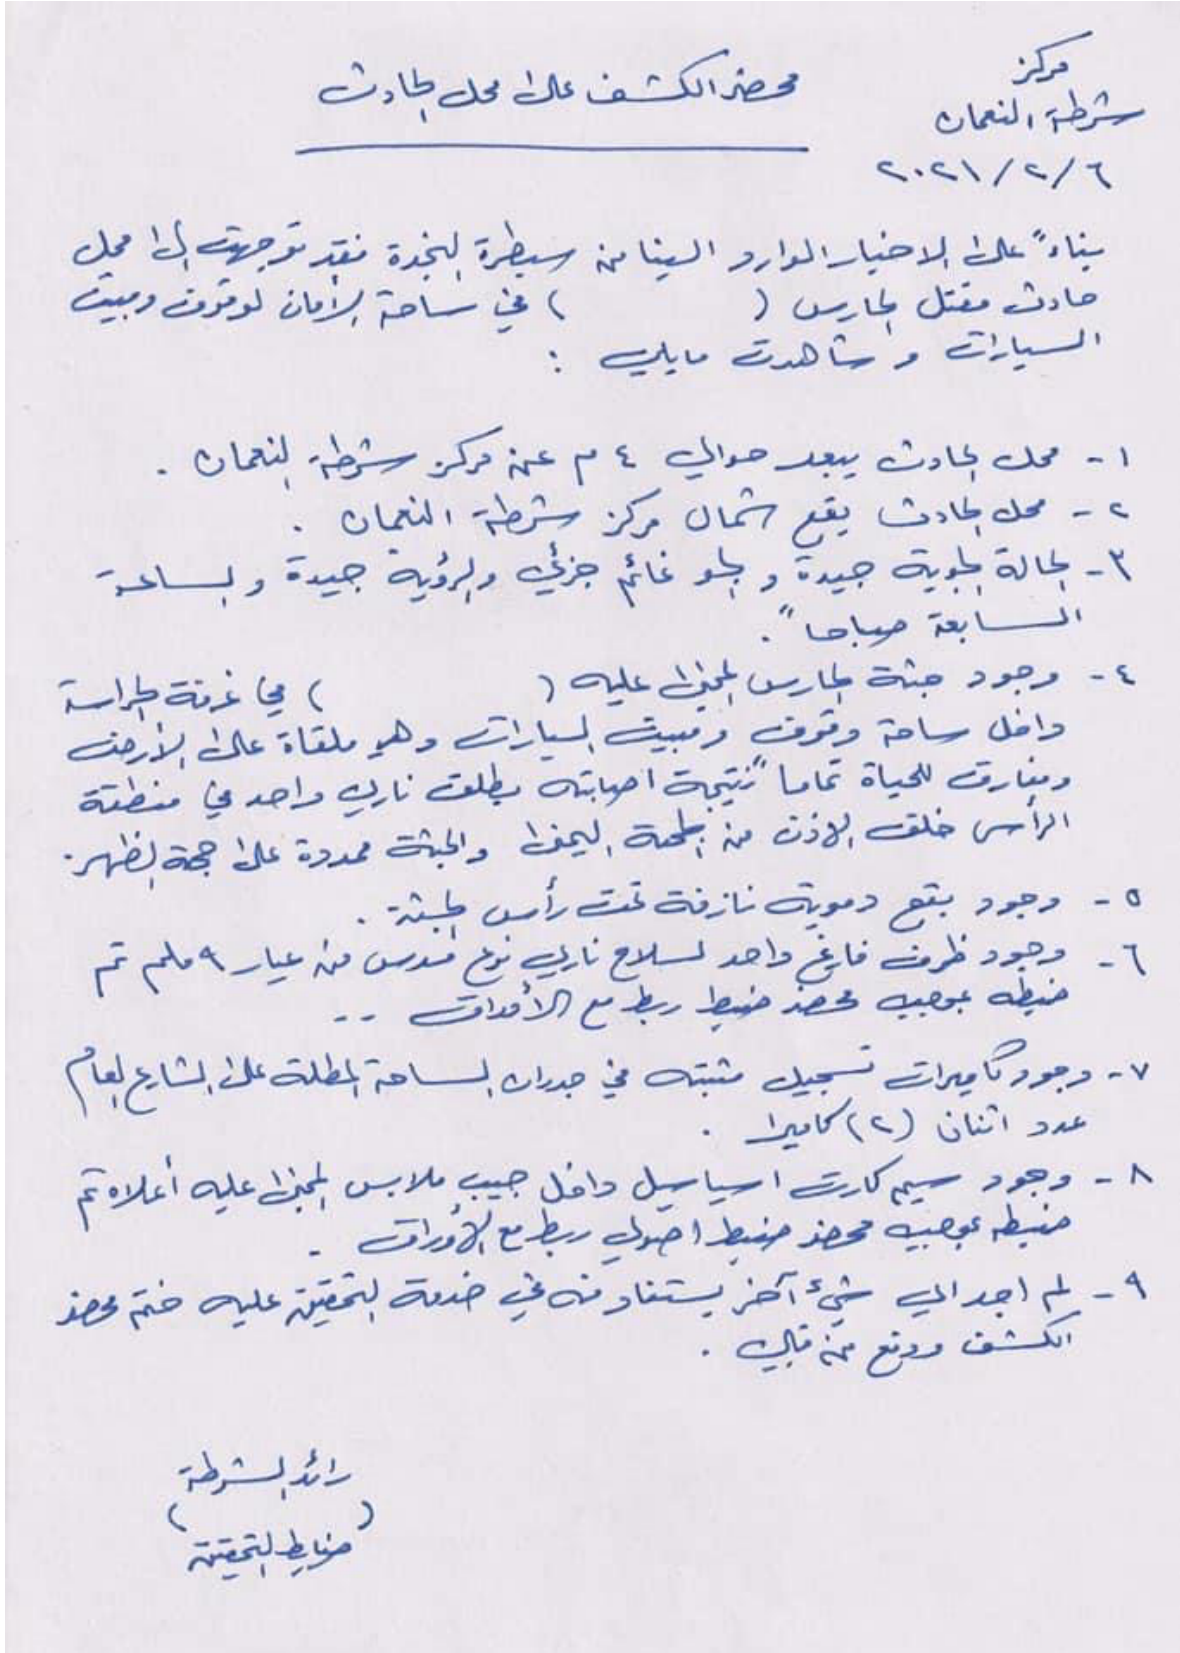 مركز
شرطة النعمان
٢٠٢١/٢/٦
محضر الكشف على محل الحادث
بناءً على الاخبار الوارد الينا من سيطرة النجدة فقد توجهت الى محل
حادث مقتل الحارس ( ) في ساحة الأمان لوقوف ومبيت
السيارات وشاهدت مايلي :
١- محل الحادث يبعد حوالي ٤ م عن مركز شرطة النعمان .
٢- محل الحادث يقع شمال مركز شرطة النعمان .
٣- الحالة الجوية جيدة والجو غائم جزئي والرؤية جيدة والساعة
السابعة صباحاً .
٤- وجود جثة الحارس المجنى عليه ( ) في غرفة الحراسة
داخل ساحة وقوف ومبيت السيارات وهو ملقاة على الأرض
ومفارق للحياة تماماً نتيجة اصابته بطلق ناري واحد في منطقة
الرأس خلف الاذن من الجهة اليمنى والجثة ممددة على جهة الظهر.
٥- وجود بقع دموية نازفة تحت رأس الجثة .
٦- وجود ظرف فارغ واحد لسلاح ناري نوع مسدس من عيار ٩ ملم تم
ضبطه بموجب محضر ضبط ربط مع الأوراق --
٧- وجود كاميرات تسجيل مثبته في جدران الساحة المطلة على الشارع العام
عدد اثنان (٢) كاميرا .
٨- وجود سيم كارت اسياسيل داخل جيب ملابس المجنى عليه أعلاه تم
ضبطه بموجب محضر ضبط اصولي ربط مع الأوراق -
٩- لم اجد اي شيء آخر يستفاد منه في خدمة التحقيق عليه ختم محضر
الكشف ووقع من قبلي .
رائد الشرطة
( )
ضابط التحقيق